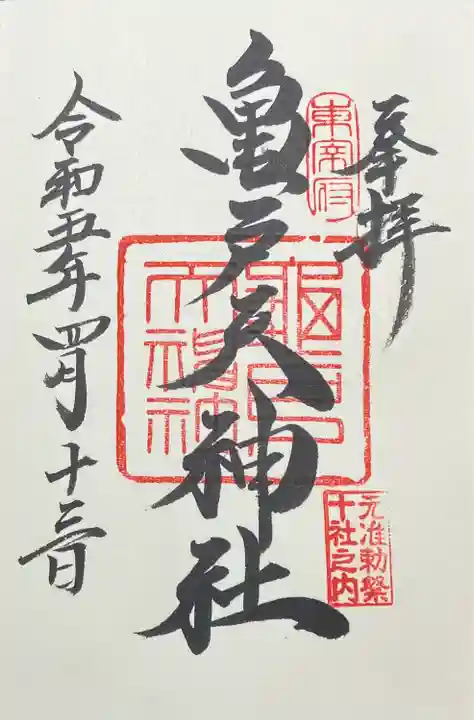 奉拝
東宰府
亀戸天神社
元准勅祭
十社之内
令和五年四月十三日